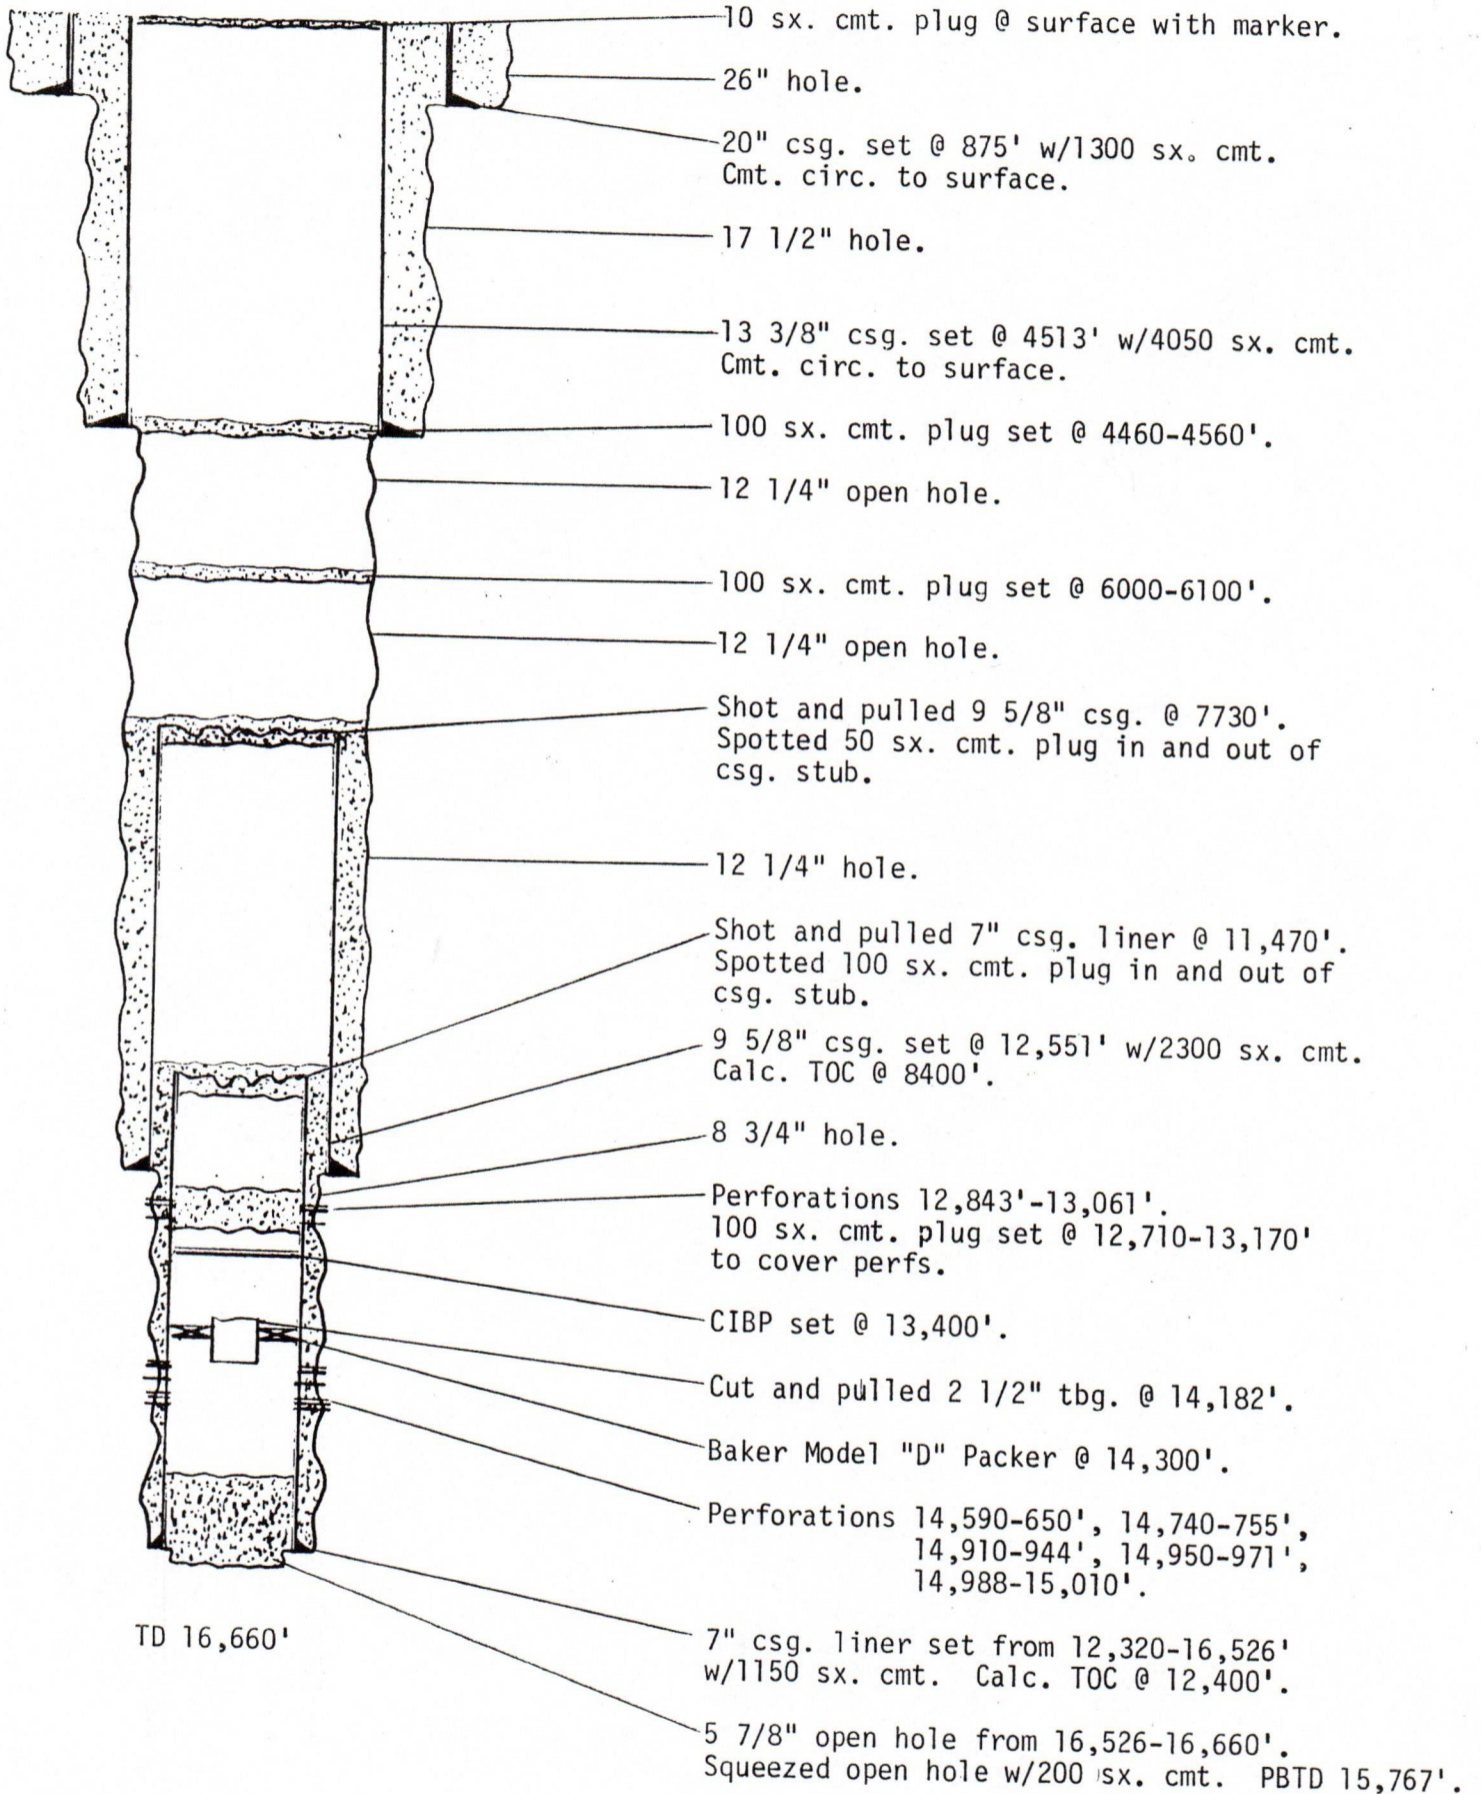 10 sx. cmt. plug @ surface with marker.
26" hole.
20" csg. set @ 875' w/1300 sx. cmt.
Cmt. circ. to surface.
17 1/2" hole.
13 3/8" csg. set @ 4513' w/4050 sx. cmt.
Cmt. circ. to surface.
100 sx. cmt. plug set @ 4460-4560'.
12 1/4" open hole.
100 sx. cmt. plug set @ 6000-6100'.
12 1/4" open hole.
Shot and pulled 9 5/8" csg. @ 7730'.
Spotted 50 sx. cmt. plug in and out of
csg. stub.
12 1/4" hole.
Shot and pulled 7" csg. liner @ 11,470'.
Spotted 100 sx. cmt. plug in and out of
csg. stub.
9 5/8" csg. set @ 12,551' w/2300 sx. cmt.
Calc. TOC @ 8400'.
8 3/4" hole.
Perforations 12,843'-13,061'.
100 sx. cmt. plug set @ 12,710-13,170'
to cover perfs.
CIBP set @ 13,400'.
Cut and pulled 2 1/2" tbg. @ 14,182'.
Baker Model "D" Packer @ 14,300'.
Perforations 14,590-650', 14,740-755',
14,910-944', 14,950-971',
14,988-15,010'.
TD 16,660'
7" csg. liner set from 12,320-16,526'
w/1150 sx. cmt. Calc. TOC @ 12,400'.
5 7/8" open hole from 16,526-16,660'.
Squeezed open hole w/200 sx. cmt. PBTD 15,767'.